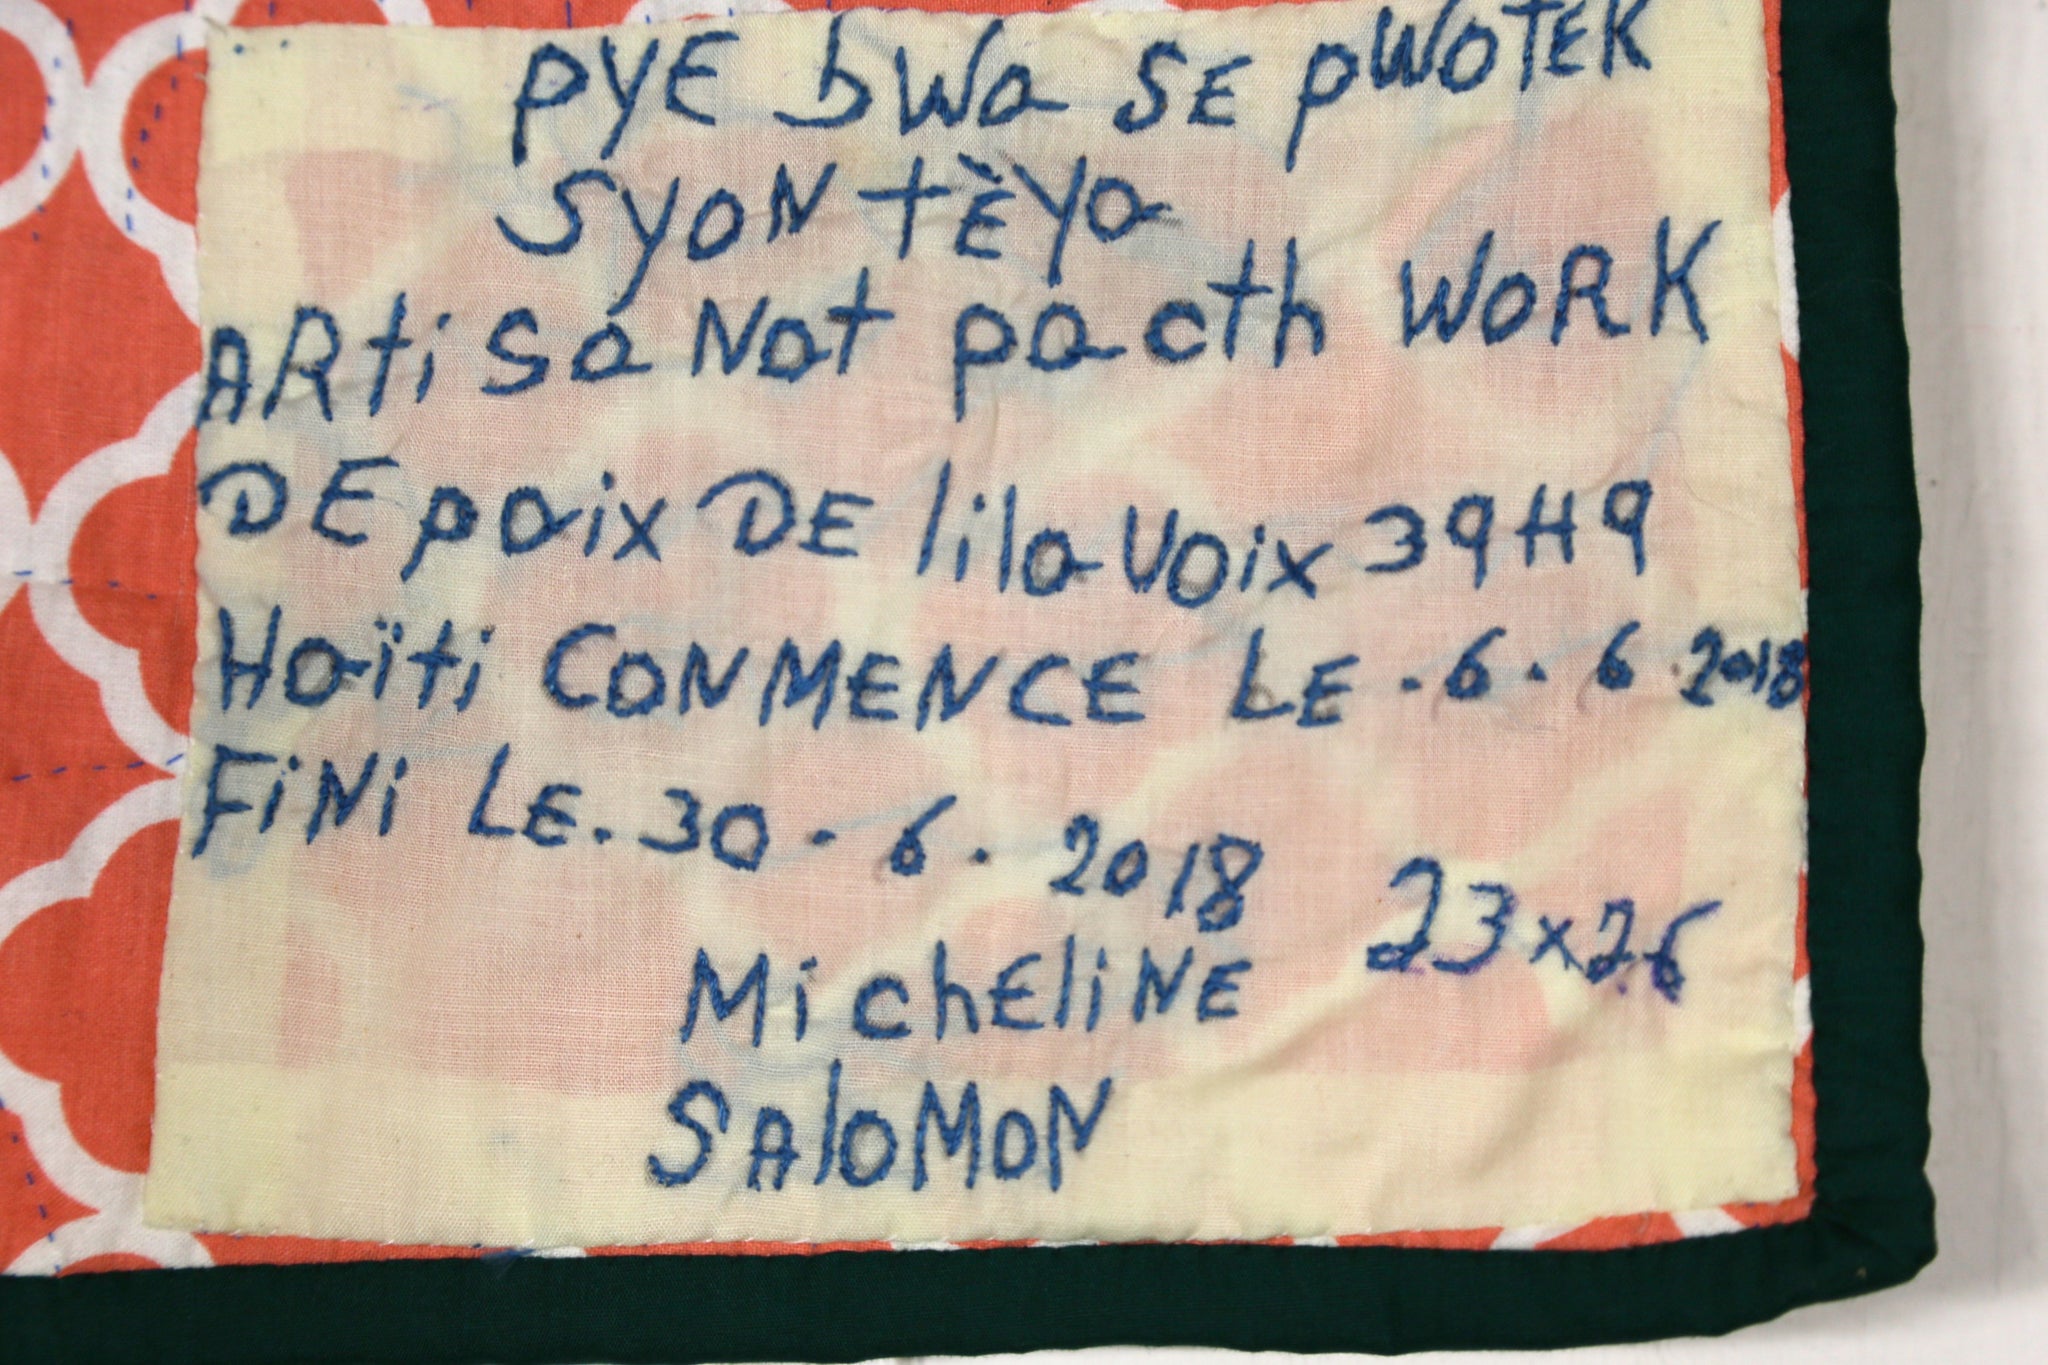 PYE bWa SE pWOTEK
SYON tÈYa
ARtiSaNat pacth WORK
DE paix DE lilaVoix 39H9
Haïti CONMENCE LE.6.6.2018
FiNi LE.30.6.2018
23x26
MichEliNE
SAloMON